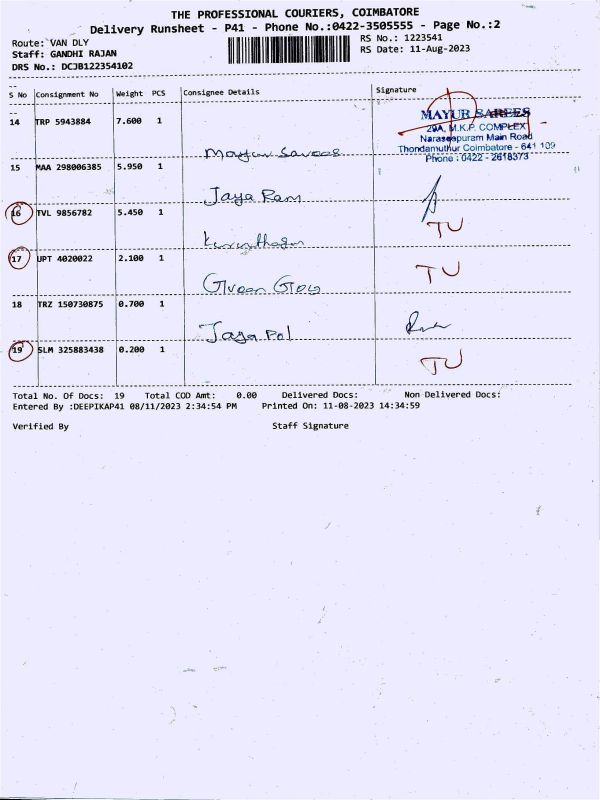 THE PROFESSIONAL COURIERS, COIMBATORE
Delivery Runsheet - P41 - Phone No.:0422-3505555 - Page No.:2
Route: VAN DLY RS No.: 1223541
Staff: GANDHI RAJAN RS Date: 11-Aug-2023
DRS No.: DCJB122354102
S No Consignment No Weight PCS Consignee Details Signature
14 TRP 5943884 7.600 1
MAYUR SAREES
29A, M.K.P. COMPLEX
Naraseepuram Main Road
Thondamuthur Coimbatore - 641 109
Phone : 0422 - 2618373
Mayur Sarees
15 MAA 298006385 5.950 1
Jaya Ram
16 TVL 9856782 5.450 1 TU
17 UPT 4020022 2.100 1 TU
Green Glow
18 TRZ 150730875 0.700 1
Jaya Pol
19 SLM 325883438 0.200 1 TU
Total No. Of Docs: 19 Total COD Amt: 0.00 Delivered Docs: Non Delivered Docs:
Entered By :DEEPIKAP41 08/11/2023 2:34:54 PM Printed On: 11-08-2023 14:34:59
Verified By Staff Signature